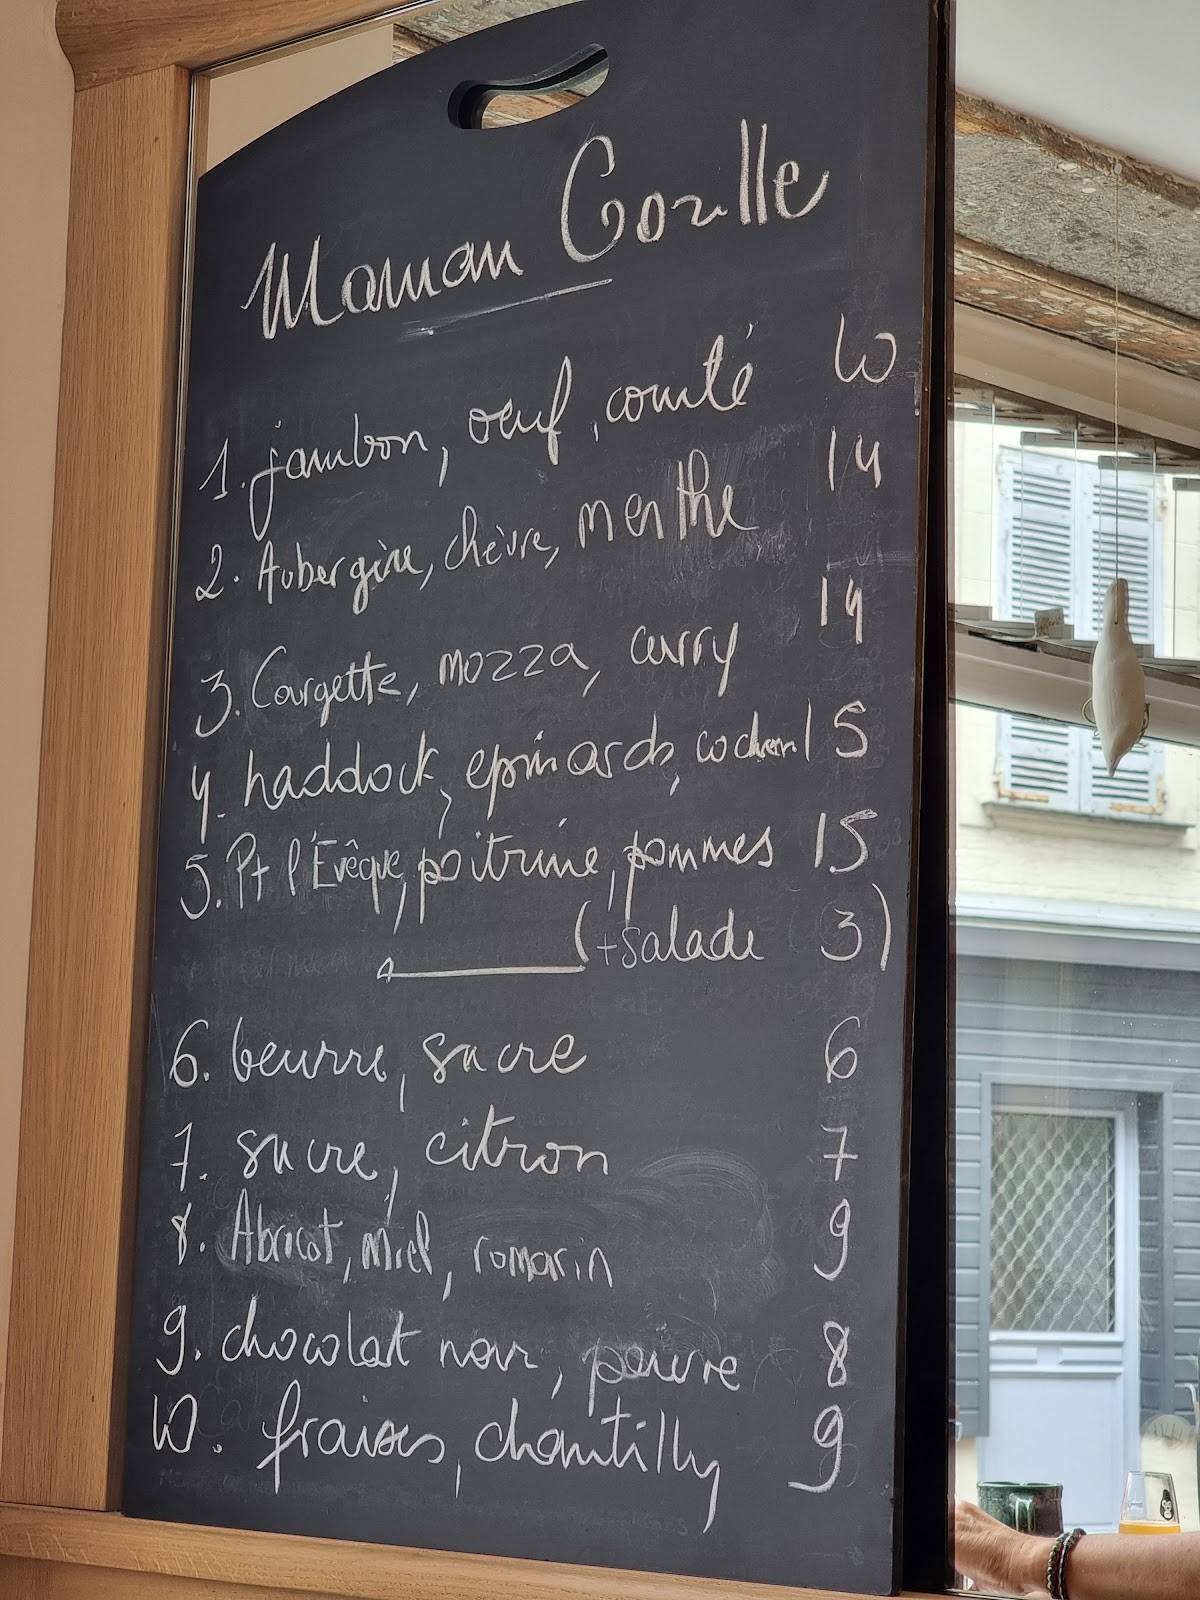 Maman Gorille
1. jambon, oeuf, comté 10
2. Aubergine, chèvre, menthe 14
3. Courgette, mozza, curry 14
4. haddock, epinards, 15
5. Pt l'Évêque, poitrine, pommes 15
(+salade 3)
6. beurre, sucre 6
7. sucre, citron 7
8. Abricot, miel, romarin 9
9. chocolat noir, poivre 8
10. fraises, chantilly 9